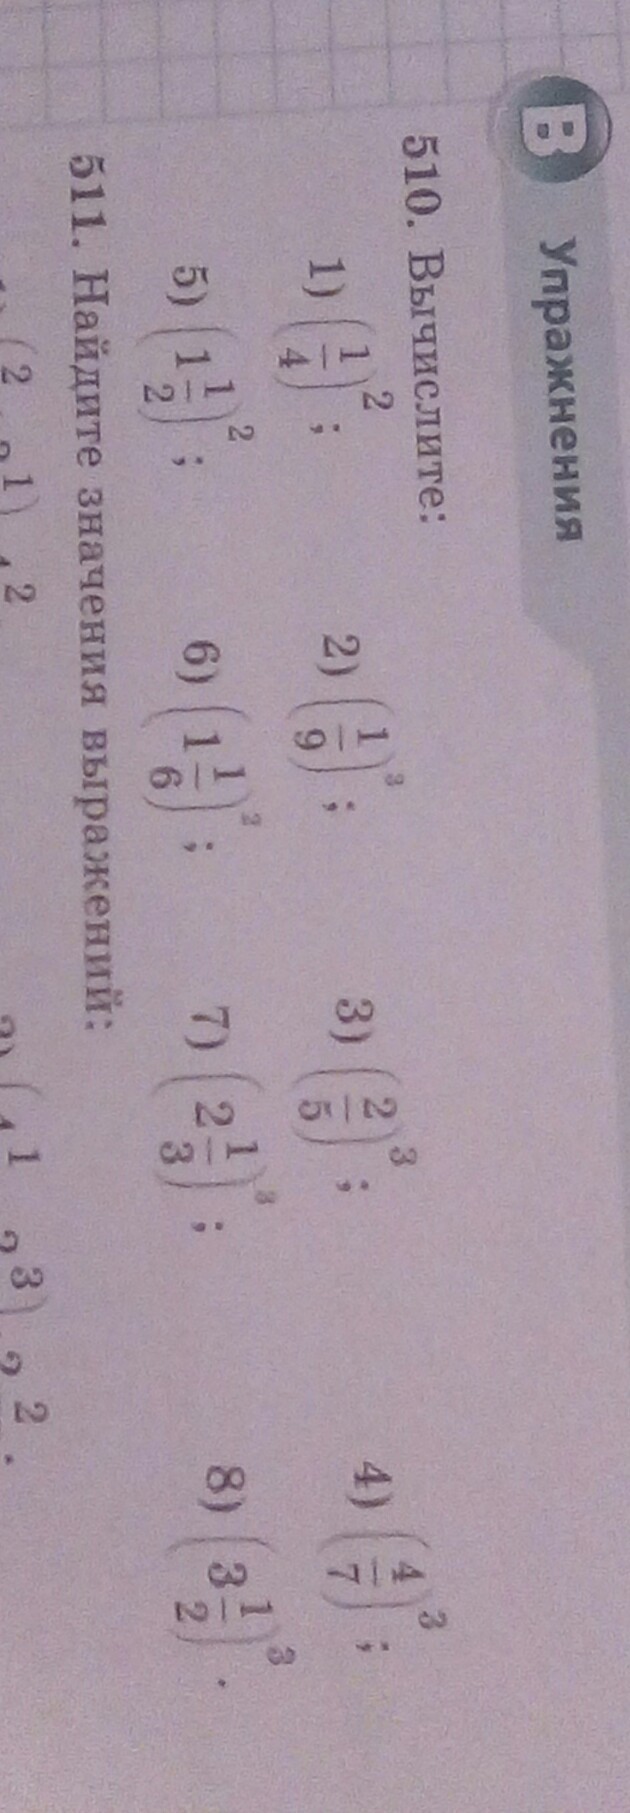 B Упражнения
510. Вычислите:
1) (1/4)²; 2) (1/9)³; 3) (2/5)³; 4) (4/7)³;
5) (1 1/2)²; 6) (1 1/6)²; 7) (2 1/3)³; 8) (3 1/2)³.
511. Найдите значения выражений: